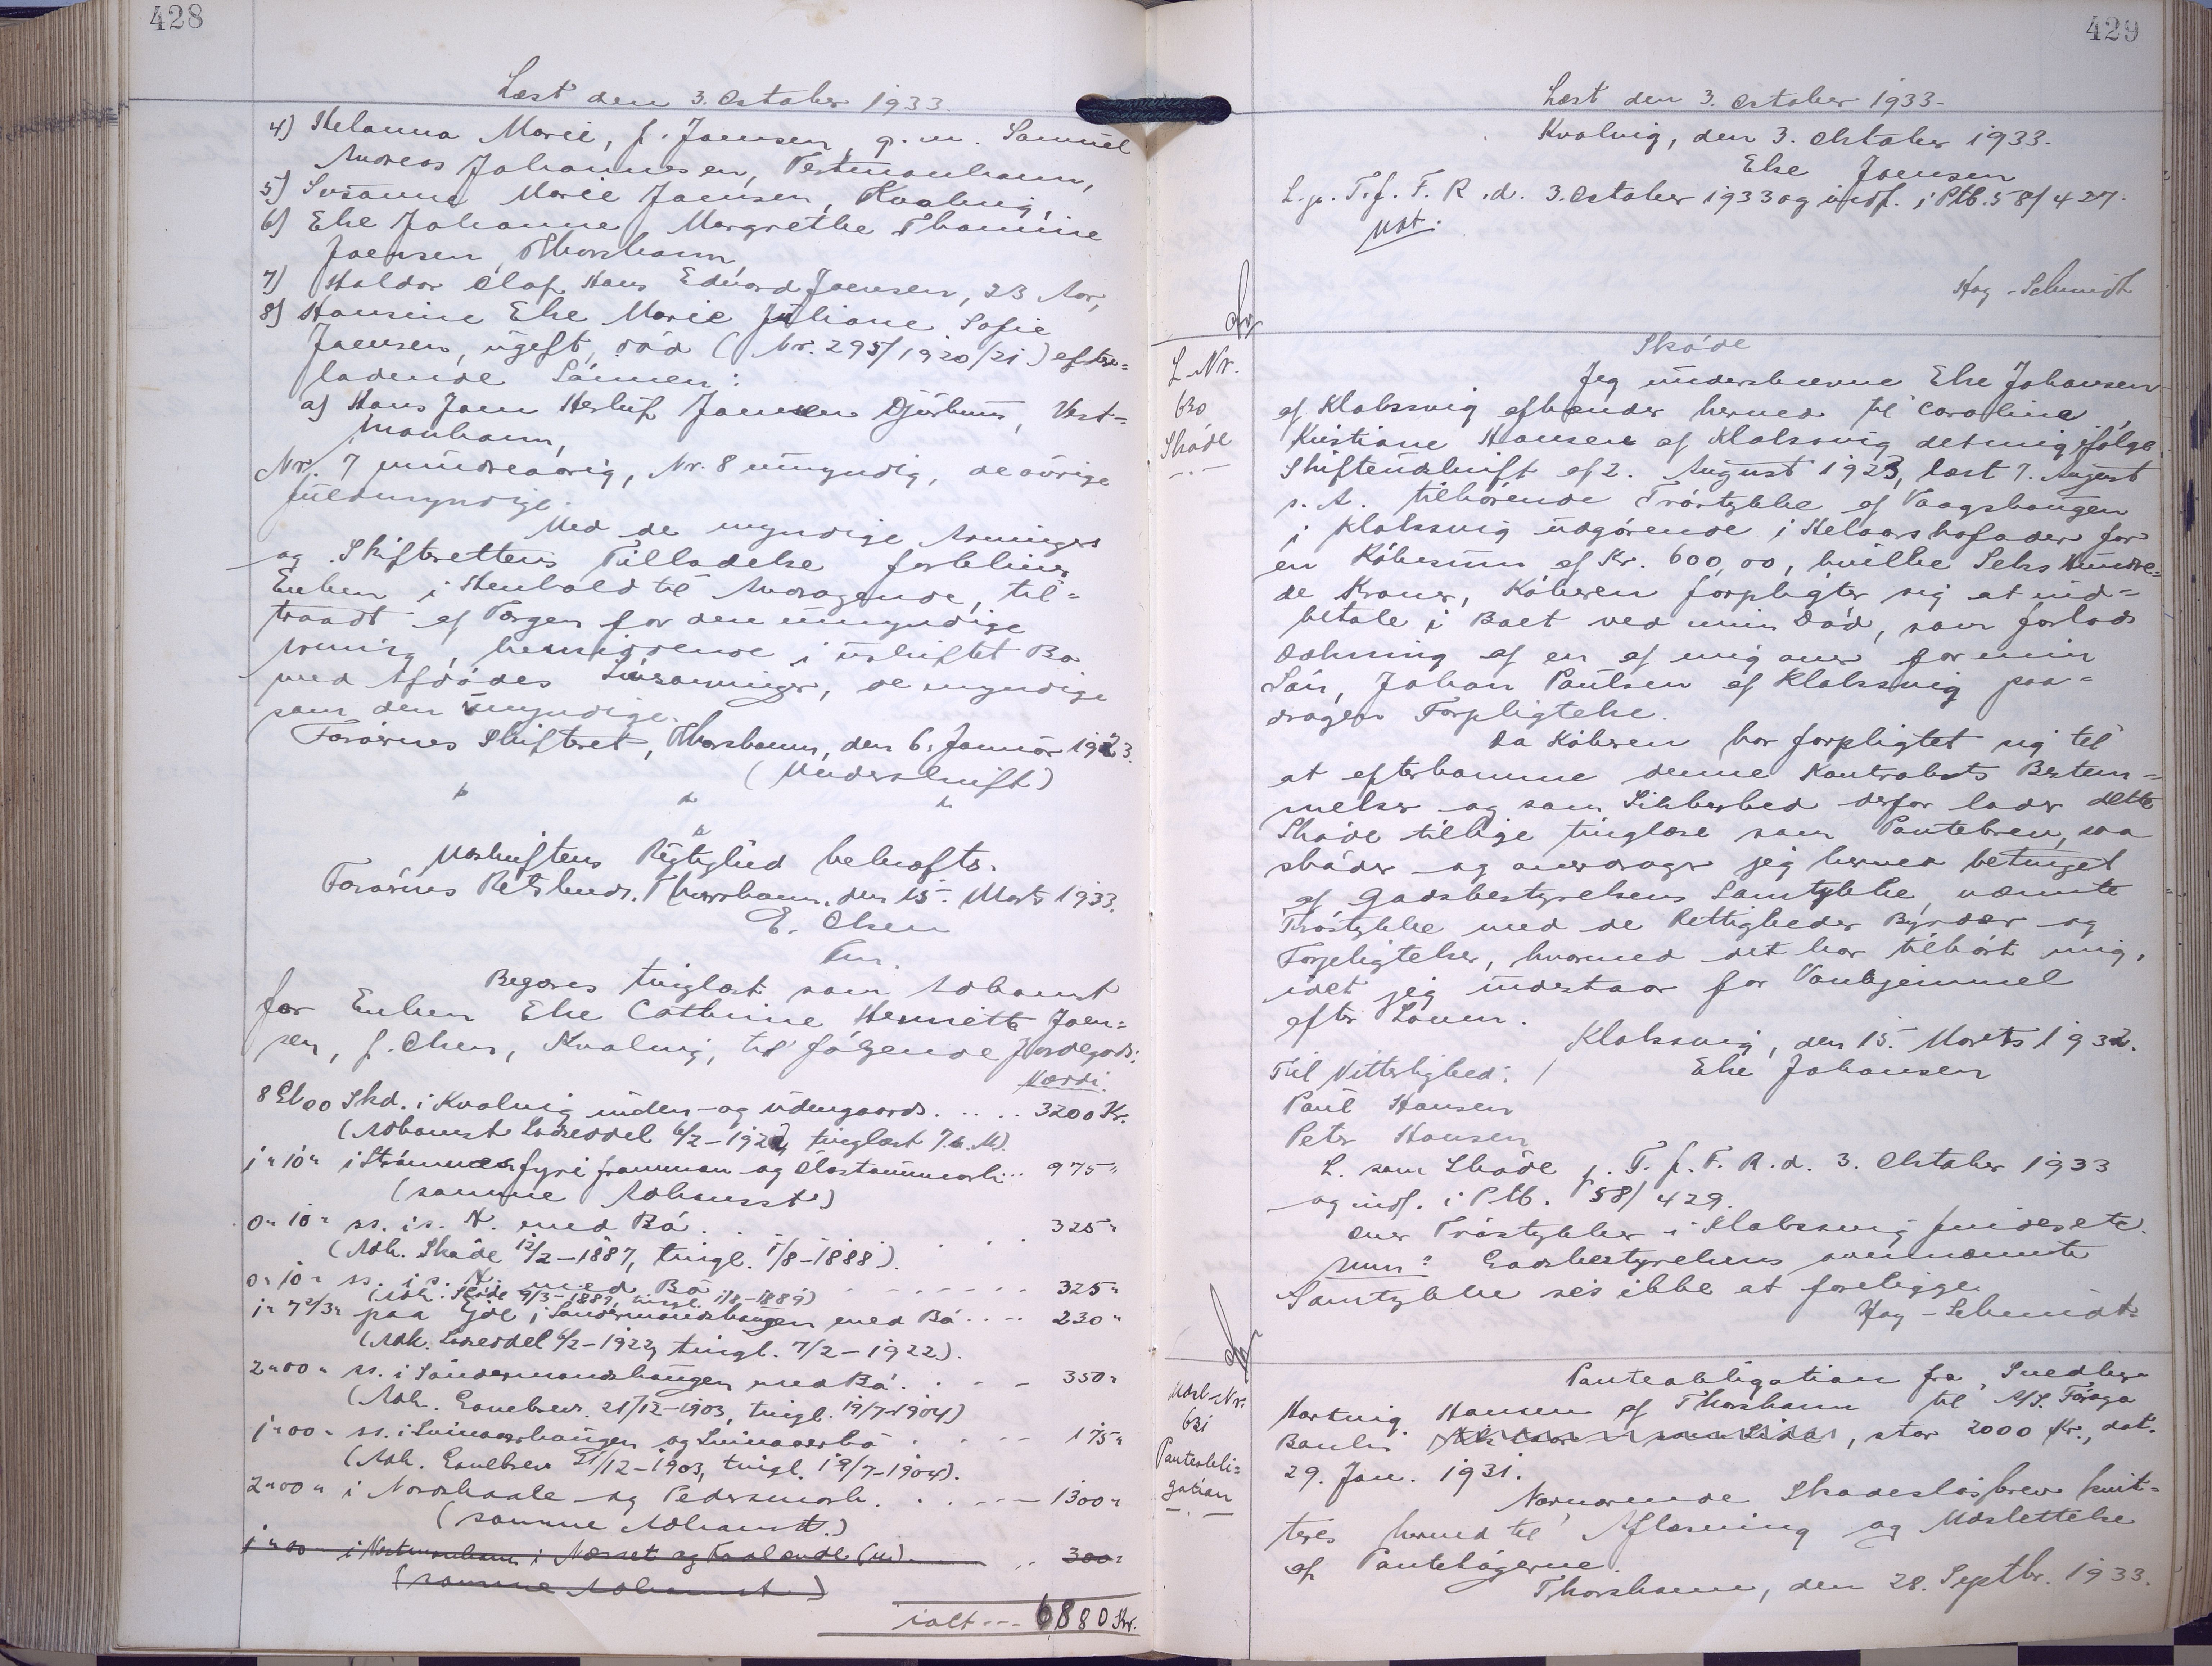 428
Læst den 3. October 1933.
4) Helanna Marie, f. Joensen, g. m. Samuel
Andreas Johannesen, Vestmanhavn,
5) Susanna Marie Joensen, Kvalvig,
6) Else Johanne Margrethe Thomine
Joensen, Thorshavn
7) Haldor Olaf Hans Edvard Joensen, 23 Aar,
8) Hansine Else Marie Juliane Sofie
Joensen, ugift, död (Nr. 295/1920/21) efter=
ladende Sönnen:
a) Hans Joen Herluf Joensen Djurhuus, Vest=
manhavn,
Nr. 7 mindreaarig, Nr. 8 umyndig, de övrige
fuldmyndige.
Med de myndige Arvingers
og Skifterettens Tilladelse forbliver
Enken i Henhold til Andragende, til=
traadt af Værgen for den umyndige
Arving, hensiddende i uskiftet Bo
med Afdödes Livsarvinger, de myndige
som den umyndige.
Færöernes Skifteret, Thorshavn, den 6. Januar 1923.
(Underskrift)
Udskriftens Rigtighed bekræftes.
Færöernes Retskreds. Thorshavn, den 15. Marts 1933.
E. Olsen
Fm.
Begæres tinglæst som Adkomst
for Enken Else Cathrine Henriette Joen=
sen, f. Olsen, Kvalvig, til fölgende Jordegods:
Værdi.
8 Gl 00 Skd. i Kvalvig inden- og udengaards. . . . . 3200 Kr.
(Adkomst Lodseddel 6/2-1922, tinglæst 7. s. M.)
1 " 10 " i Strömnes fyri framman og Östanummark ... 975 "
(samme Adkomst)
0 " 10 " ss. i s. N. med Bö . . . . . 325 "
(Adk. Sköde 12/2-1887, tingl. 1/8-1888).
0 " 10 " ss. i s. N. med Bö - - - - - - 325 "
(Adk. Sköde 9/3-1889, tingl. 1/8-1889)
1 " 7 2/3 " paa Gjöl i Söndermandshaugen med Bö . . . . 230 "
(Adk. Lodseddel 6/2-1922, tingl. 7/2-1922).
2 " 00 " ss. i Söndermandshaugen med Bö . . . . 350 "
(Adk. Gavebrev. 21/12-1903, tingl. 19/7-1904)
1 " 00 " ss. i Svinaaerhaugen og Svinaaerbö . . . . 175 "
(Adk. Gavebrev 21/12-1903, tingl. 19/7-1904).
2 " 00 " i Nordskaale og Pedersmark. . . . . . 1300 "
(samme Adkomst.)
1 " 00 " i Vestmanhavn i Nesset og (u) . . 300 "
(samme Adkomst)
ialt --- 6880 Kr.
429
Læst den 3. October 1933-
Kvalvig, den 3. Oktober 1933.
Else Joensen
L. p. T. f. F. R. d. 3. October 1933 og indf. i Ptb. 58/427.
Høg-Schmidt
L. Nr.
630
Sköde
Sköde
Jeg underskrevne Else Johansen
af Klaksvig afhænder herved til Caroline
Kristiane Hansen af Klaksvig det mig ifölge
Skifteudskrift af 2. August 1923, læst 7. August
s. A. tilhörende Tröstykke af Vaagshaugen
i Klaksvig udgörende i Helaarshofader for
en Köbesum af Kr. 600,00, hvilke Seks Hundre=
de Kroner, Köberen forpligter sig at ind=
betale i Boet ved min Död, som forlods
Dækning af en af mig over for min
Sön, Johan Paulsen af Klaksvig paa=
dragen Forpligtelse.
Da Köberen har forpligtet sig til
at efterkomme denne Kontrakts Bestem=
melser og som Sikkerhed derfor lader dette
Sköde tillige tinglæse som Pantebrev, saa
sköder og overdrager jeg herved betinget
af Gadsbestyrelsens Samtykke, nævnte
Tröstykke med de Rettigheder Byrder og
Forpligtelser, hvormed det har tilhört mig,
idet jeg indestaar for Vanhjemmel
efter Loven.
Klaksvig, den 15. Marts 1932.
Til Vitterlighed: / Else Johansen
Paul Hansen
Peter Hansen
L. som Sköde p. T. f. F. R. d. 3. Oktober 1933
og indf. i Ptb. 58/429.
Over Tröstykker i Klaksvig findes etc.
Anm: Gadsbestyrelsens ovennævnte
Samtykke ses ikke at foreligge.
Høg-Schmidt
Udsl.-Nr.
631
Panteobli=
gation
Panteobligation fra Snedker
Hartvig Hansen af Thorshavn til A/S. Föroya
Banki, stor 2000 Kr., dat.
29. Jan. 1931.
Nærværende Skadeslösbrev kvit=
teres herved til Aflæsning og Udslettelse
af Pantebögerne.
Thorshavn, den 28. Septbr. 1933.